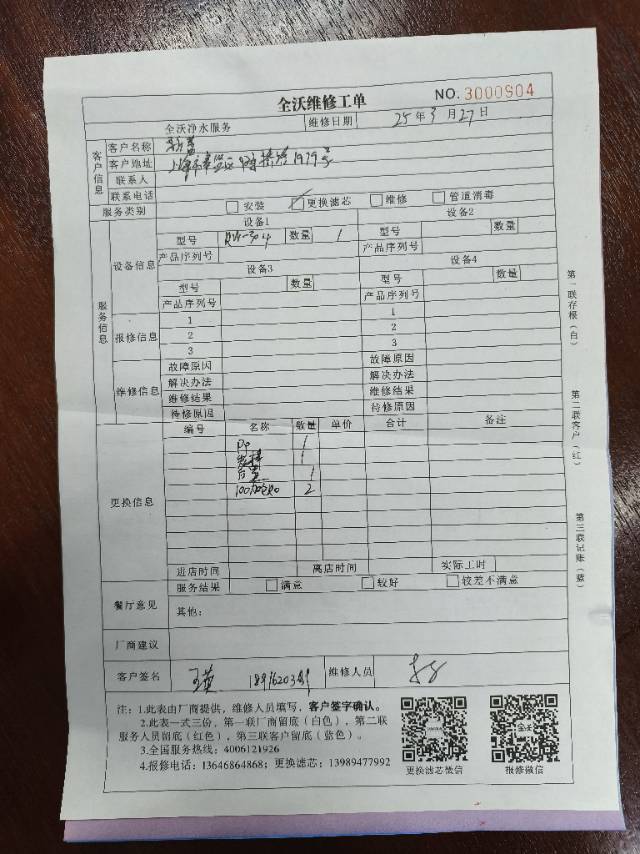 全沃维修工单
NO.3000904
全沃净水服务 维修日期 25年3月27日
客户信息
客户名称
客户地址 1979号
联系人
联系电话
服务类别 安装 更换滤芯 维修 管道消毒
服务信息
设备信息
设备1 设备2
型号 数量 1 型号 数量
产品序列号 产品序列号
设备3 设备4
型号 数量 型号 数量
产品序列号 产品序列号
报修信息
1 1
2 2
3 3
维修信息
故障原因 故障原因
解决办法 解决办法
维修结果 维修结果
待修原因 待修原因
更换信息
编号 名称 数量 单价 合计 备注
PP 1
1
1
2
进店时间 离店时间 实际工时
餐厅意见
服务结果 满意 较好 较差不满意
其他:
厂商建议
客户签名 维修人员
注:1.此表由厂商提供,维修人员填写,客户签字确认。
2.此表一式三份,第一联厂商留底(白色),第二联
服务人员留底(红色),第三联客户留底(蓝色)。
3.全国服务热线:4006121926
4.报修电话:13646864868;更换滤芯:13989477992
更换滤芯微信 报修微信
第一联存根(白)
第二联客户(红)
第三联记账(蓝)